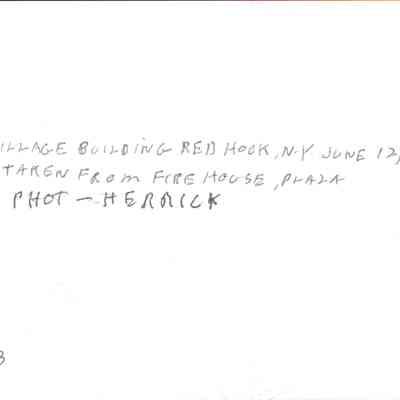 ILLAGE BUILDING RED HOOK, N.Y JUNE 12,
TAKEN FROM FIRE HOUSE, PLAZA
PHOT - HERRICK
3